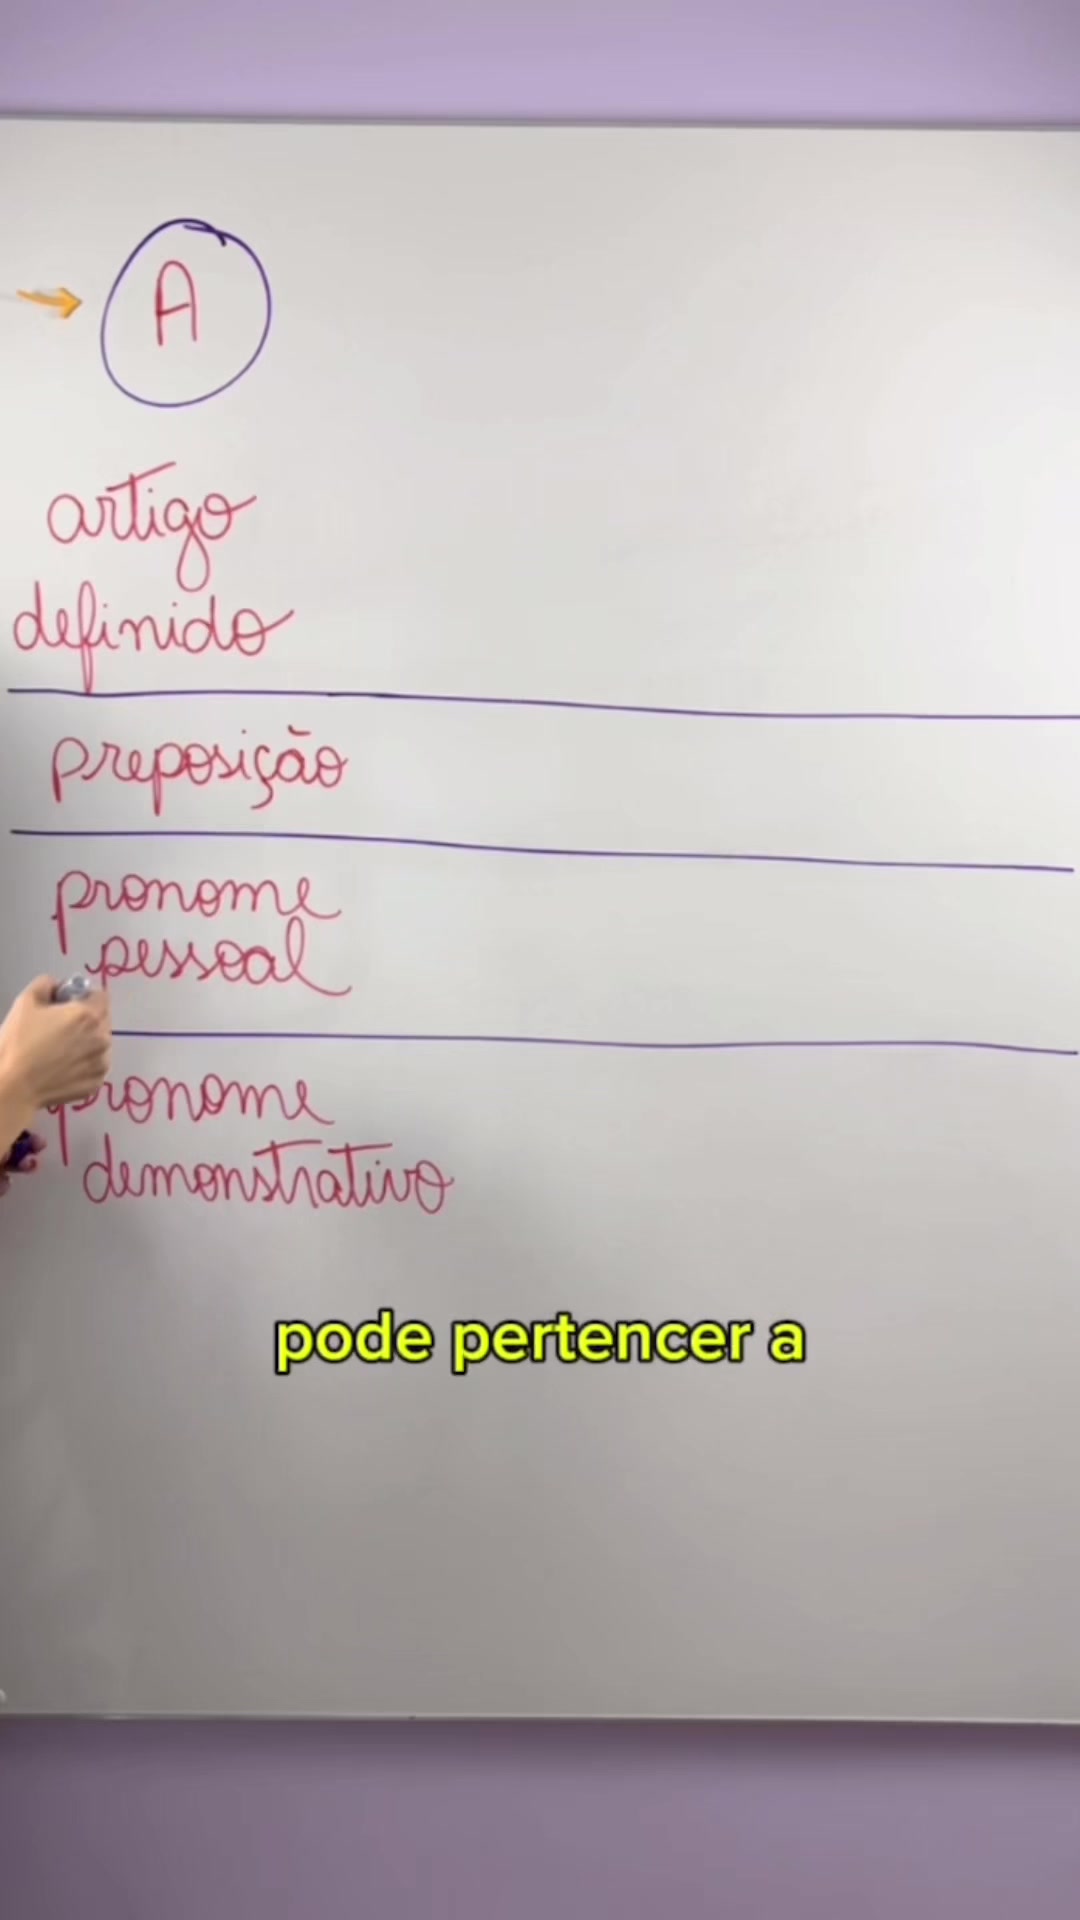 A
artigo
definido
preposição
pronome
pessoal
pronome
demonstrativo
pode pertencer a